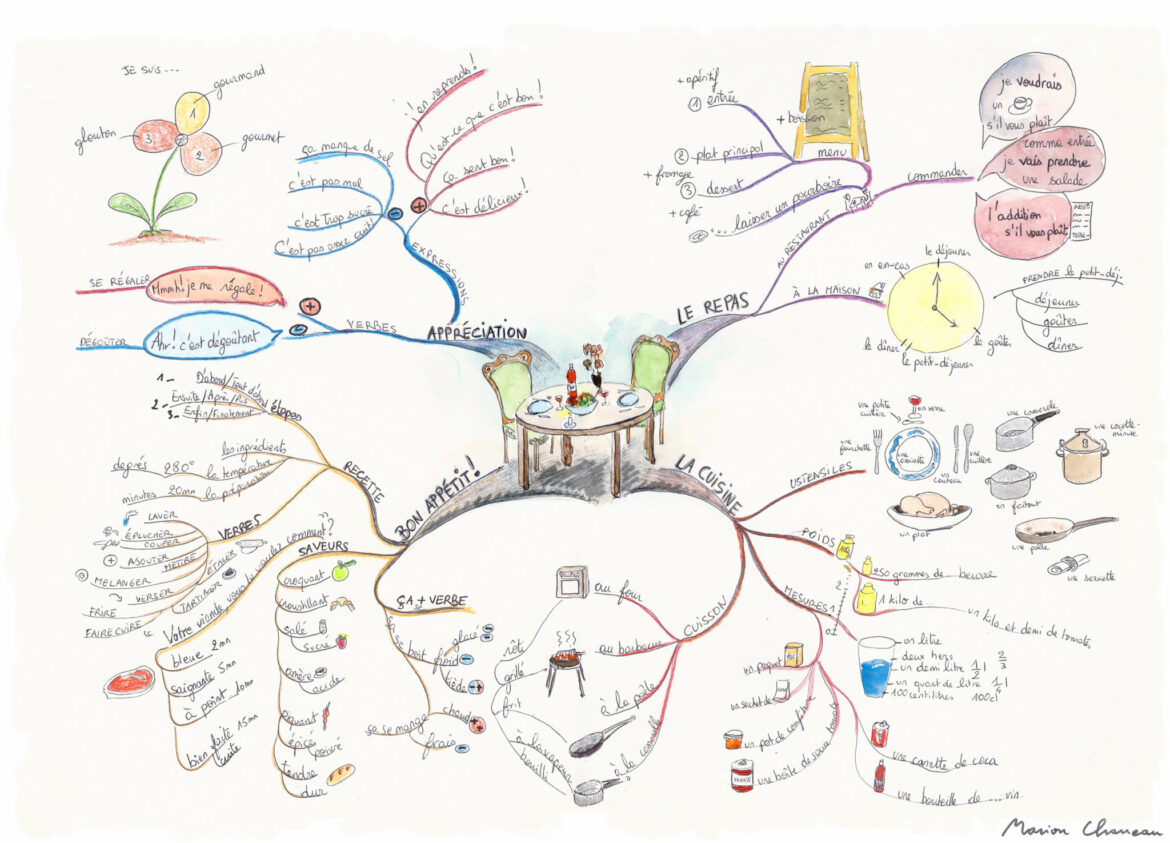 JE SUIS...
gourmand
glouton
gourmet
1
2
3
j'en reprends!
Qu'est-ce que c'est bon!
ça sent bon!
c'est délicieux!
ça manque de sel
c'est pas mal
c'est trop sucré
c'est pas assez cuit!
- +
EXPRESSIONS
SE RÉGALER
Mmmh! je me régale!
+
DÉGOÛTER
Ahr! c'est dégoûtant
-
VERBES
APPRÉCIATION
+ apéritif
1 entrée
+ boisson
2 plat principal
menu
+ fromage
3 dessert
+ café
laisser un pourboire
AU RESTAURANT
commander
je voudrais
un
s'il vous plaît
comme entrée
je vais prendre
une salade
l'addition
s'il vous plaît
TOTAL
LE REPAS
À LA MAISON
le déjeuner
en en-cas
le goûter
le dîner
le petit-déjeuner
PRENDRE le petit-déj-
déjeuner
goûter
dîner
1- D'abord/Tout d'abord
2- Ensuite/Après/Puis
3- Enfin/Finalement
étapes
les ingrédients
degrés 280° la température
minutes 20mn la préparation
RECETTE
BON APPÉTIT!
VERBES
LAVER
ÉPLUCHER
COUPER
+ AJOUTER METTRE
MELANGER
VERSER
FRIRE
FAIRE CUIRE
ÉTALER
TARTINER
Votre viande, vous la voulez comment?
bleue 2mn
saignante 5mn
à point 10mn
bien cuite 15mn
SAVEURS
croquant
croustillant
salé
sucré
amère
acide
piquant
épicé
poivré
tendre
dur
ÇA + VERBE
ça se boit
glacé
froid
tiède
ça se mange
chaud
frais
LA CUISINE
USTENSILES
une petite cuillère
un verre
une fourchette
une assiette
un couteau
une cuillère
une casserole
une cocotte-minute
un faitout
un plat
une poêle
une serviette
POIDS
250 grammes de beurre
1 kilo de...
un kilo et demi de tomates
MESURES
un litre
deux tiers 2/3
un demi litre 1/2 l
un quart de litre 1/4 l
100 centilitres 100cl
un paquet
un sachet de
un pot de confiture
une boîte de sauce tomate
une canette de coca
une bouteille de ... vin
CUISSON
au four
rôti
au barbecue
grillé
à la poêle
frit
à la vapeur
bouilli
à la casserole
Marion Charreau